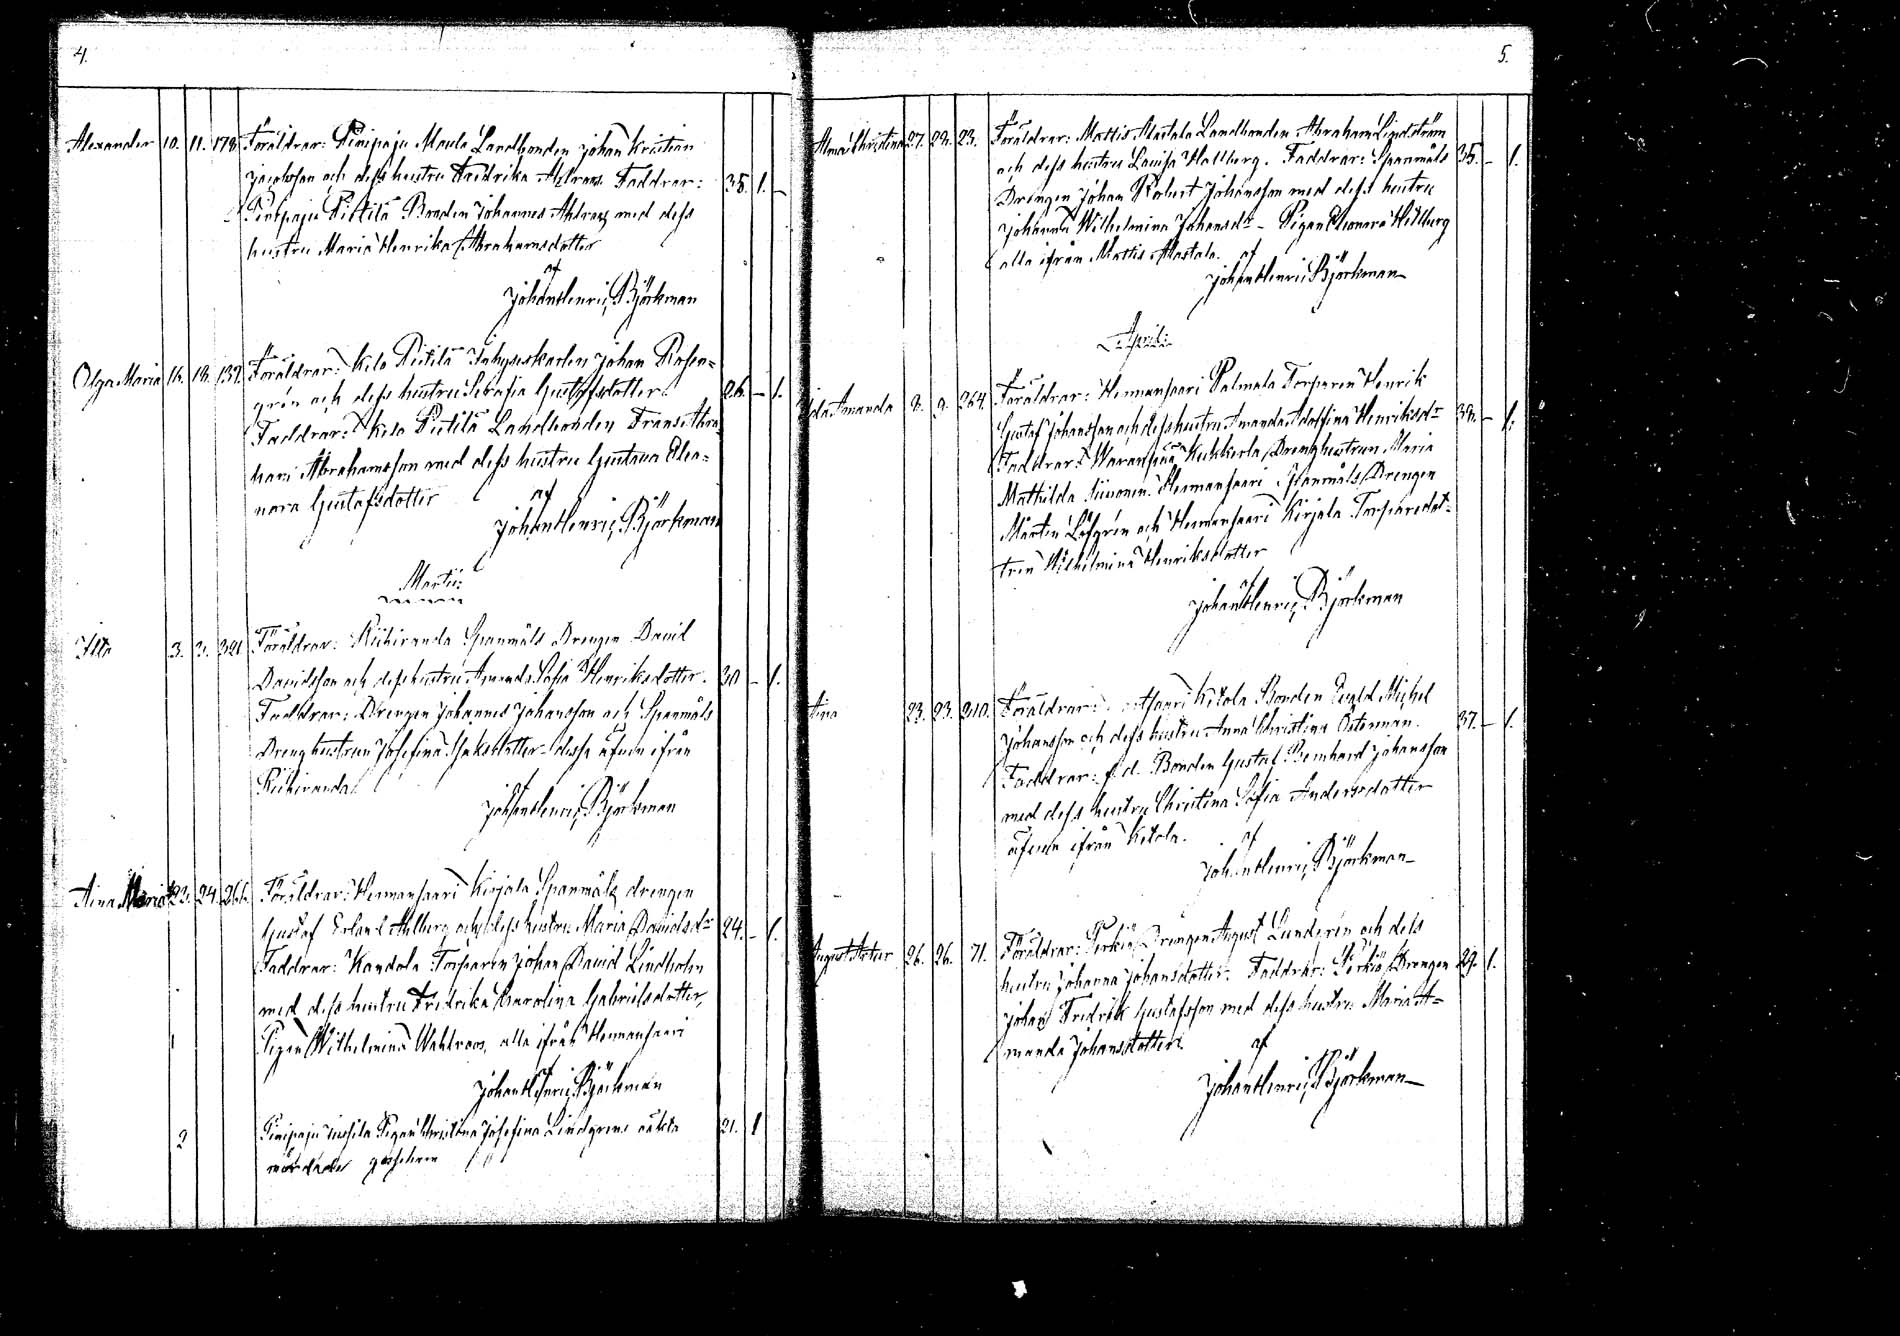 4.
Alexander 10. 11. 178. Föräldrar: Pinipaju Maula Landbonden Johan Kristian
Jacobsson och dess hustru Fredrika Ahlroos. Faddrar: 35. 1. –
Pinipaju Pietilä Bonden Johannes Ahlroos med dess
hustru Maria Henrika Abrahamsdotter
af
Johan Henric Björkman
Olga Maria 16. 18. 132. Föräldrar: Kelo Pietilä Inhyseskarlen Johan Rosen=
grén och dess hustru Serafia Gustafsdotter. 26. – 1.
Faddrar: Kelo Pietilä Landbonden Frans Abra=
ham Abrahamsson med dess hustru Gustava Eleo=
nora Gustafsdotter
af
Johan Henric Björkman
Martii:
3. 3. 321 Föräldrar: Riihiranda Spanmåls Drengen David
Davidsson och dess hustru Amanda Sofia Henriksdotter. 30 – 1.
Faddrar: Drengen Johannes Johansson och Spanmåls
Dreng hustrun Josefina Isaksdotter dessa äfven ifrån
Riihiranda.
af
Johan Henric Björkman
Aina Maria 23. 24. 266. Föräldrar: Hermansaari Kirjala Spanmåls drengen
Gustaf Erland Ahlberg och dess hustru Maria Davidsdr 24. – 1.
Faddrar: Kandola Torparen Johan David Lindholm
med dess hustru Fredrika Karolina Gabrielsdotter,
1 Pigan Wilhelmina Wahlroos, alla ifrån Hermansaari
af
Johan Henric Björkman
2 Pinipaju Pigan Christina Josefina Lindgrens oäkta 21. 1
gossebarn
5.
Alma Christina 27. 28. 23. Föräldrar: Mattis Alastalo Landbonden Abraham Lindström
och dess hustru Lovisa Hallberg. Faddrar: Spanmåls 35. – 1.
Drengen Johan Robert Johansson med dess hustru
Johanna Wilhelmina Johansdr – Pigan Eleonora Hellberg
alla ifrån Mattis Alastalo. af
Johan Henric Björkman
Aprili:
Ida Amanda 8. 9. 264. Föräldrar: Hermansaari Palmala Torparen Henrik
Gustaf Johansson och dess hustru Amanda Adolfina Henriksdr 38. – 1.
Faddrar: Waranpää Kukkerla Dreng hustrun Maria
Mathilda Siivonen. Hermansaari Spanmåls Drengen
Mårten Löfgrén och Hermansaari Kirjala Torparedot=
tren Wilhelmina Henriksdotter
af
Johan Henric Björkman
23. 23. 310. Föräldrar: Kitola Bonden Evald Michel
Johansson och dess hustru Anna Christina Österman. 37. – 1.
Faddrar: f.d. Bonden Gustaf Bernhard Johansson
med dess hustru Christina Sofia Andersdotter
äfven ifrån Kitola. af
Johan Henric Björkman
August Artur 26. 26. 71. Föräldrar: Perkiö Drengen August Lunderén och dess
hustru Johanna Johansdotter. Faddrar: Perkiö Drengen 29. 1.
Johan Fredrik Gustafsson med dess hustru Maria A=
manda Johansdotter. af
Johan Henric Björkman